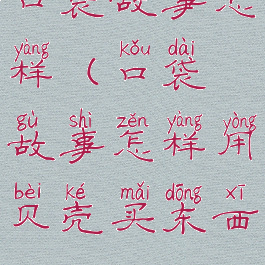 口袋故事怎
yàng kǒu dài
样（口袋
gù shì zěn yàng yòng
故事怎样用
bèi ké mǎi dōng xī
贝壳买东西